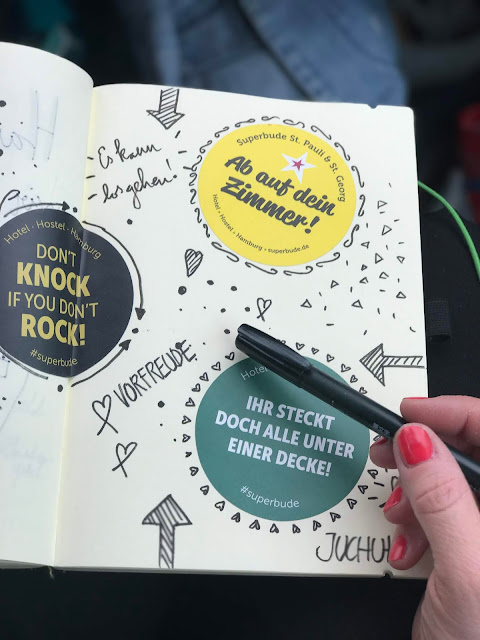 Es kann
losgehen!
Superbude St. Pauli & St. Georg
Ab auf dein
Zimmer!
Hotel · Hostel · Hamburg · superbude.de
Hotel · Hostel · Hamburg
DON'T
KNOCK
IF YOU DON'T
ROCK!
#superbude
VORFREUDE
Hotel
IHR STECKT
DOCH ALLE UNTER
EINER DECKE!
#superbude
JUCHUH